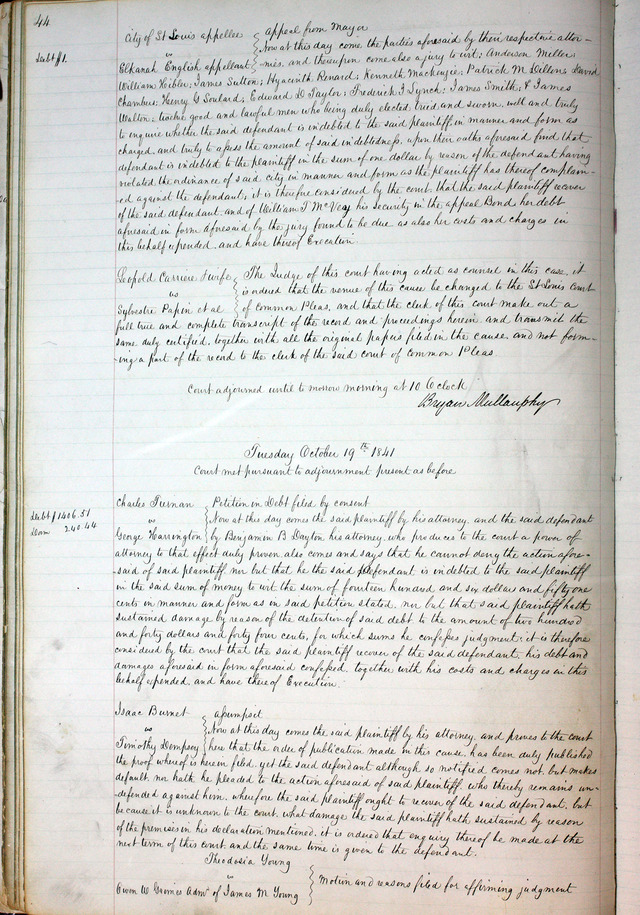 44
City of St Louis appellee } Appeal from Mayor
vs } Now at this day come the parties aforesaid by their respective attor-
Debt $1.
Elkanah English appellant } nies, and thereupon come also a jury to wit; Anderson Miller
William Hibler; James Sutton; Hyacinth Renard; Kenneth Mackenzie; Patrick M Dillon; David
Chambers; Henry G Soulard; Edward D Taylor; Frederick J Lynch; James Smith; & James
Walton; twelve good and lawful men who being duly elected, tried, and sworn, well and truly
to enquire whether the said defendant is indebted to the said plaintiff, in manner, and form as
charged, and truly to assess the amount of said indebtedness, upon their oaths aforesaid find that
defendant is indebted to the plaintiff in the sum of one dollar by reason of the defendant having
violated the ordinance of said city in manner and form as the plaintiff has thereof complain-
ed against the defendant; it is therefore considered by the court, that the said plaintiff recover
of the said defendant, and of William J McVeay his security in the appeal Bond her debt
aforesaid in form aforesaid by the jury found to be due as also her costs and charges in
this behalf expended, and have thereof Execution.
Leopold Carriere & wife } The Judge of this court having acted as counsel in this case, it
vs } is ordered that the venue of this cause be changed to the St Louis Court
Sylvestre Papin et al } of Common Pleas, and that the clerk of this court make out a
full true and complete transcript of the record and proceedings herein and transmit the
same duly certified, together with all the original papers filed in the cause and not form-
ing a part of the record to the clerk of the said court of Common Pleas
Court adjourned until to morrow morning at 10 O'clock
Bryan Mullanphy
Tuesday October 19th 1841
Court met pursuant to adjournment present as before
Charles Tiernan } Petition in Debt filed by consent
Debt $1406.51
vs } Now at this day comes the said plaintiff by his attorney, and the said defendant
Dam 240.44
George Harrington } by Benjamin B Dayton his attorney, who produces to the court a power of
attorney to that effect duly proven also comes and says that he cannot deny the action afore-
said of said plaintiff nor but that he the said Defendant is indebted to the said plaintiff
in the said sum of money to wit the sum of fourteen hundred and six dollars and fifty one
cents in manner and form as in said petition stated, nor but that said plaintiff hath
sustained damage by reason of the detention of said debt to the amount of two hundred
and forty dollars and forty four cents, for which sums he confesses judgment; it is therefore
considered by the court that the said plaintiff recover of the said defendant, his debt and
damages aforesaid in form aforesaid confessed, together with his costs and charges in this
behalf expended, and have thereof Execution.
Isaac Burnet } assumpsit
vs } Now at this day comes the said plaintiff by his attorney, and proves to the court
Timothy Dempsey } here that the order of publication made in this cause, has been duly published
the proof whereof is herein filed, yet the said defendant although so notified comes not, but makes
default, nor hath he pleaded to the action aforesaid of said plaintiff, who thereby remains un-
defended against him, wherefore the said plaintiff ought to recover of the said defendant, but
because it is unknown to the court, what damage the said plaintiff hath sustained by reason
of the premises in his declaration mentioned, it is ordered that enquiry thereof be made at the
next term of this court, and the same time is given to the defendant.
Theodosia Young
vs } Motion and reasons filed for affirming judgment
Owen W Grimes Admr of James M Young